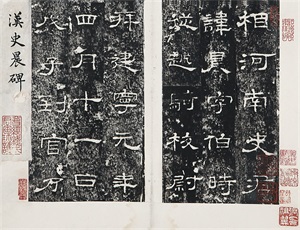 相河南史君
諱晨字伯時
從越騎校尉
拜建寧元年
四月十一日
戊子到官乃
漢史晨碑